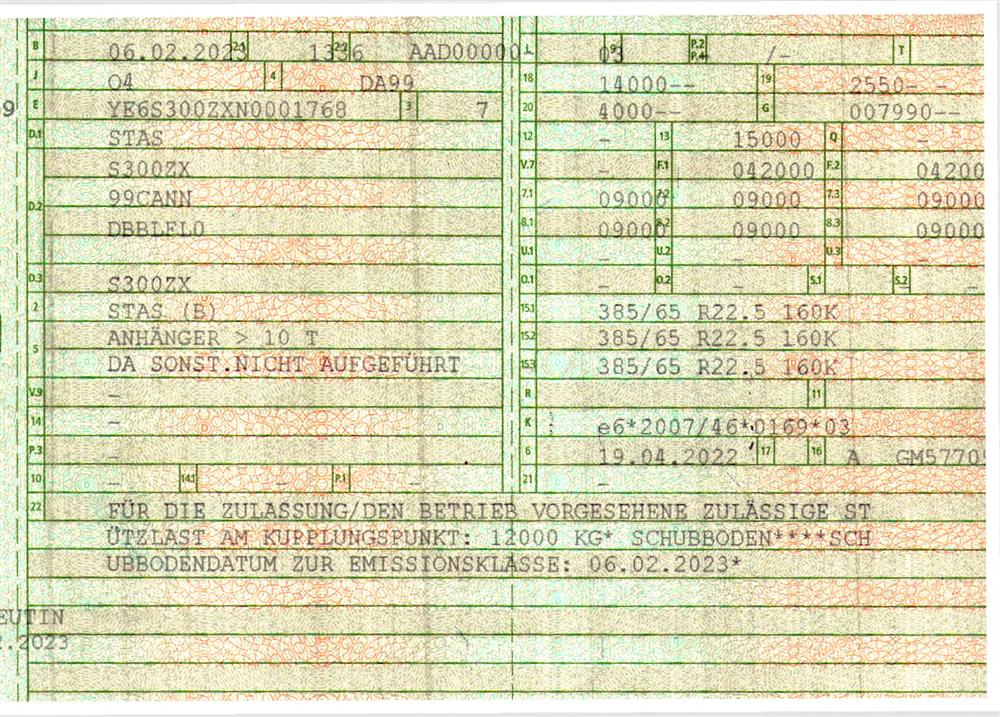 B 06.02.2023 2.1 1336 2.2 AAD00000- L 9 03 P.2 P.4 /- T
J 04 4 DA99 18 14000-- 19 2550- -
9 E YE6S300ZXN0001768 3 7 20 4000-- G 007990--
D.1 STAS 12 - 13 15000 Q -
S300ZX V.7 - F.1 042000 F.2 04200
D.2 99CANN 7.1 09000 7.2 09000 7.3 09000
DBBLFL0 8.1 09000 8.2 09000 8.3 09000
U.1 - U.2 - U.3 -
D.3 S300ZX O.1 - O.2 - S.1 S.2 -
2 STAS (B) 15.1 385/65 R22.5 160K
5 ANHÄNGER > 10 T 15.2 385/65 R22.5 160K
DA SONST.NICHT AUFGEFÜHRT 15.3 385/65 R22.5 160K
V.9 - R 11
14 - K e6*2007/46*0169*03
P.3 - 6 19.04.2022 17 16 A GM57705
10 - 14.1 - P.1 - 21 -
22 FÜR DIE ZULASSUNG/DEN BETRIEB VORGESEHENE ZULÄSSIGE ST
ÜTZLAST AM KUPPLUNGSPUNKT: 12000 KG* SCHUBBODEN****SCH
UBBODENDATUM ZUR EMISSIONSKLASSE: 06.02.2023*
EUTIN
.2023